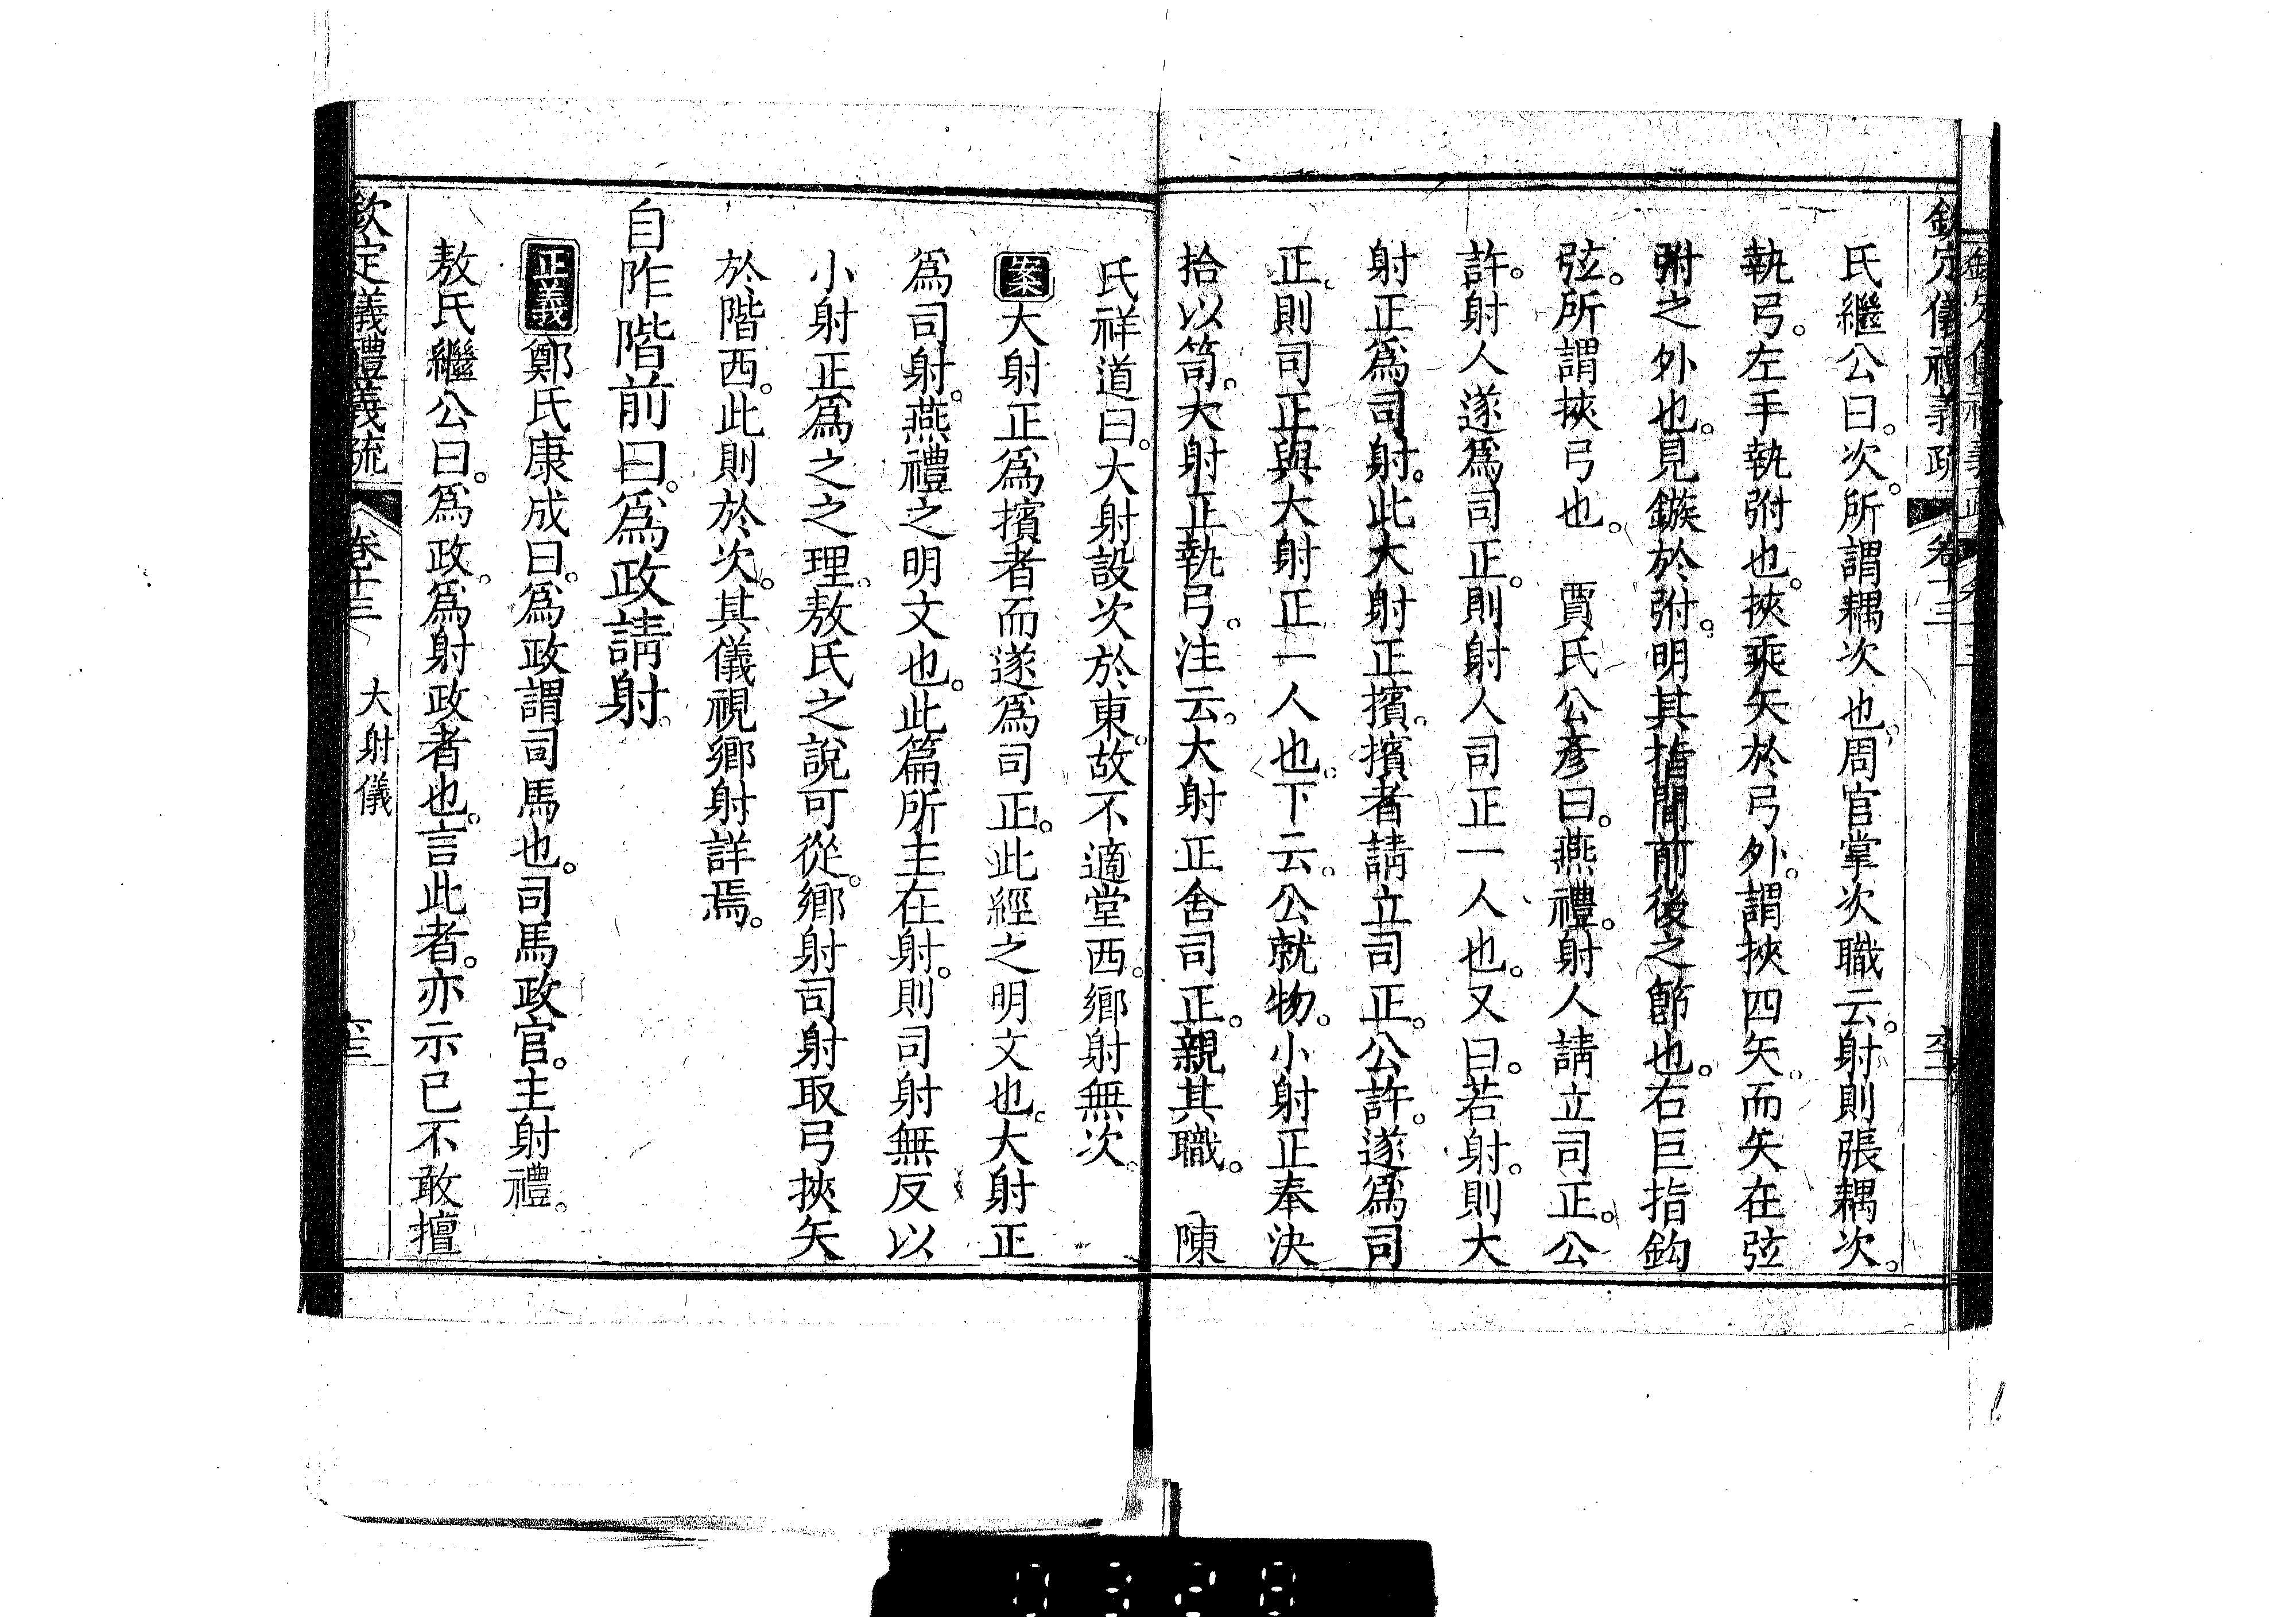 欽定儀禮義疏 卷十三
氏繼公曰。次。所謂耦次也。周官掌次職云。射則張耦次。
執弓。左手執弣也。挾乘矢於弓外。謂挾四矢。而矢在弦
弣之外也。見鏃於弣。明其指間前後之節也。右巨指鉤
弦。所謂挾弓也。 賈氏公彥曰。燕禮。射人請立司正。公
許。射人遂爲司正。則射人司正一人也。又曰。若射。則大
射正爲司射。此大射正擯。擯者請立司正。公許。遂爲司
正。則司正與大射正一人也。下云。公就物。小射正奉決
拾以笥。大射正執弓。注云。大射正舍司正。親其職。 陳
氏祥道曰。大射設次於東。故不適堂西。鄉射無次。
案大射正爲擯者而遂爲司正。此經之明文也。大射正
爲司射。燕禮之明文也。此篇所主在射。則司射無反以
小射正爲之之理。敖氏之說可從。鄉射司射取弓挾矢
於階西。此則於次。其儀視鄉射詳焉。
自阼階前曰。爲政請射。
正義鄭氏康成曰。爲政謂司馬也。司馬政官。主射禮。
敖氏繼公曰。爲政。爲射政者也。言此者。亦示已不敢擅
欽定儀禮義疏 卷十三 大射儀 六三
0328